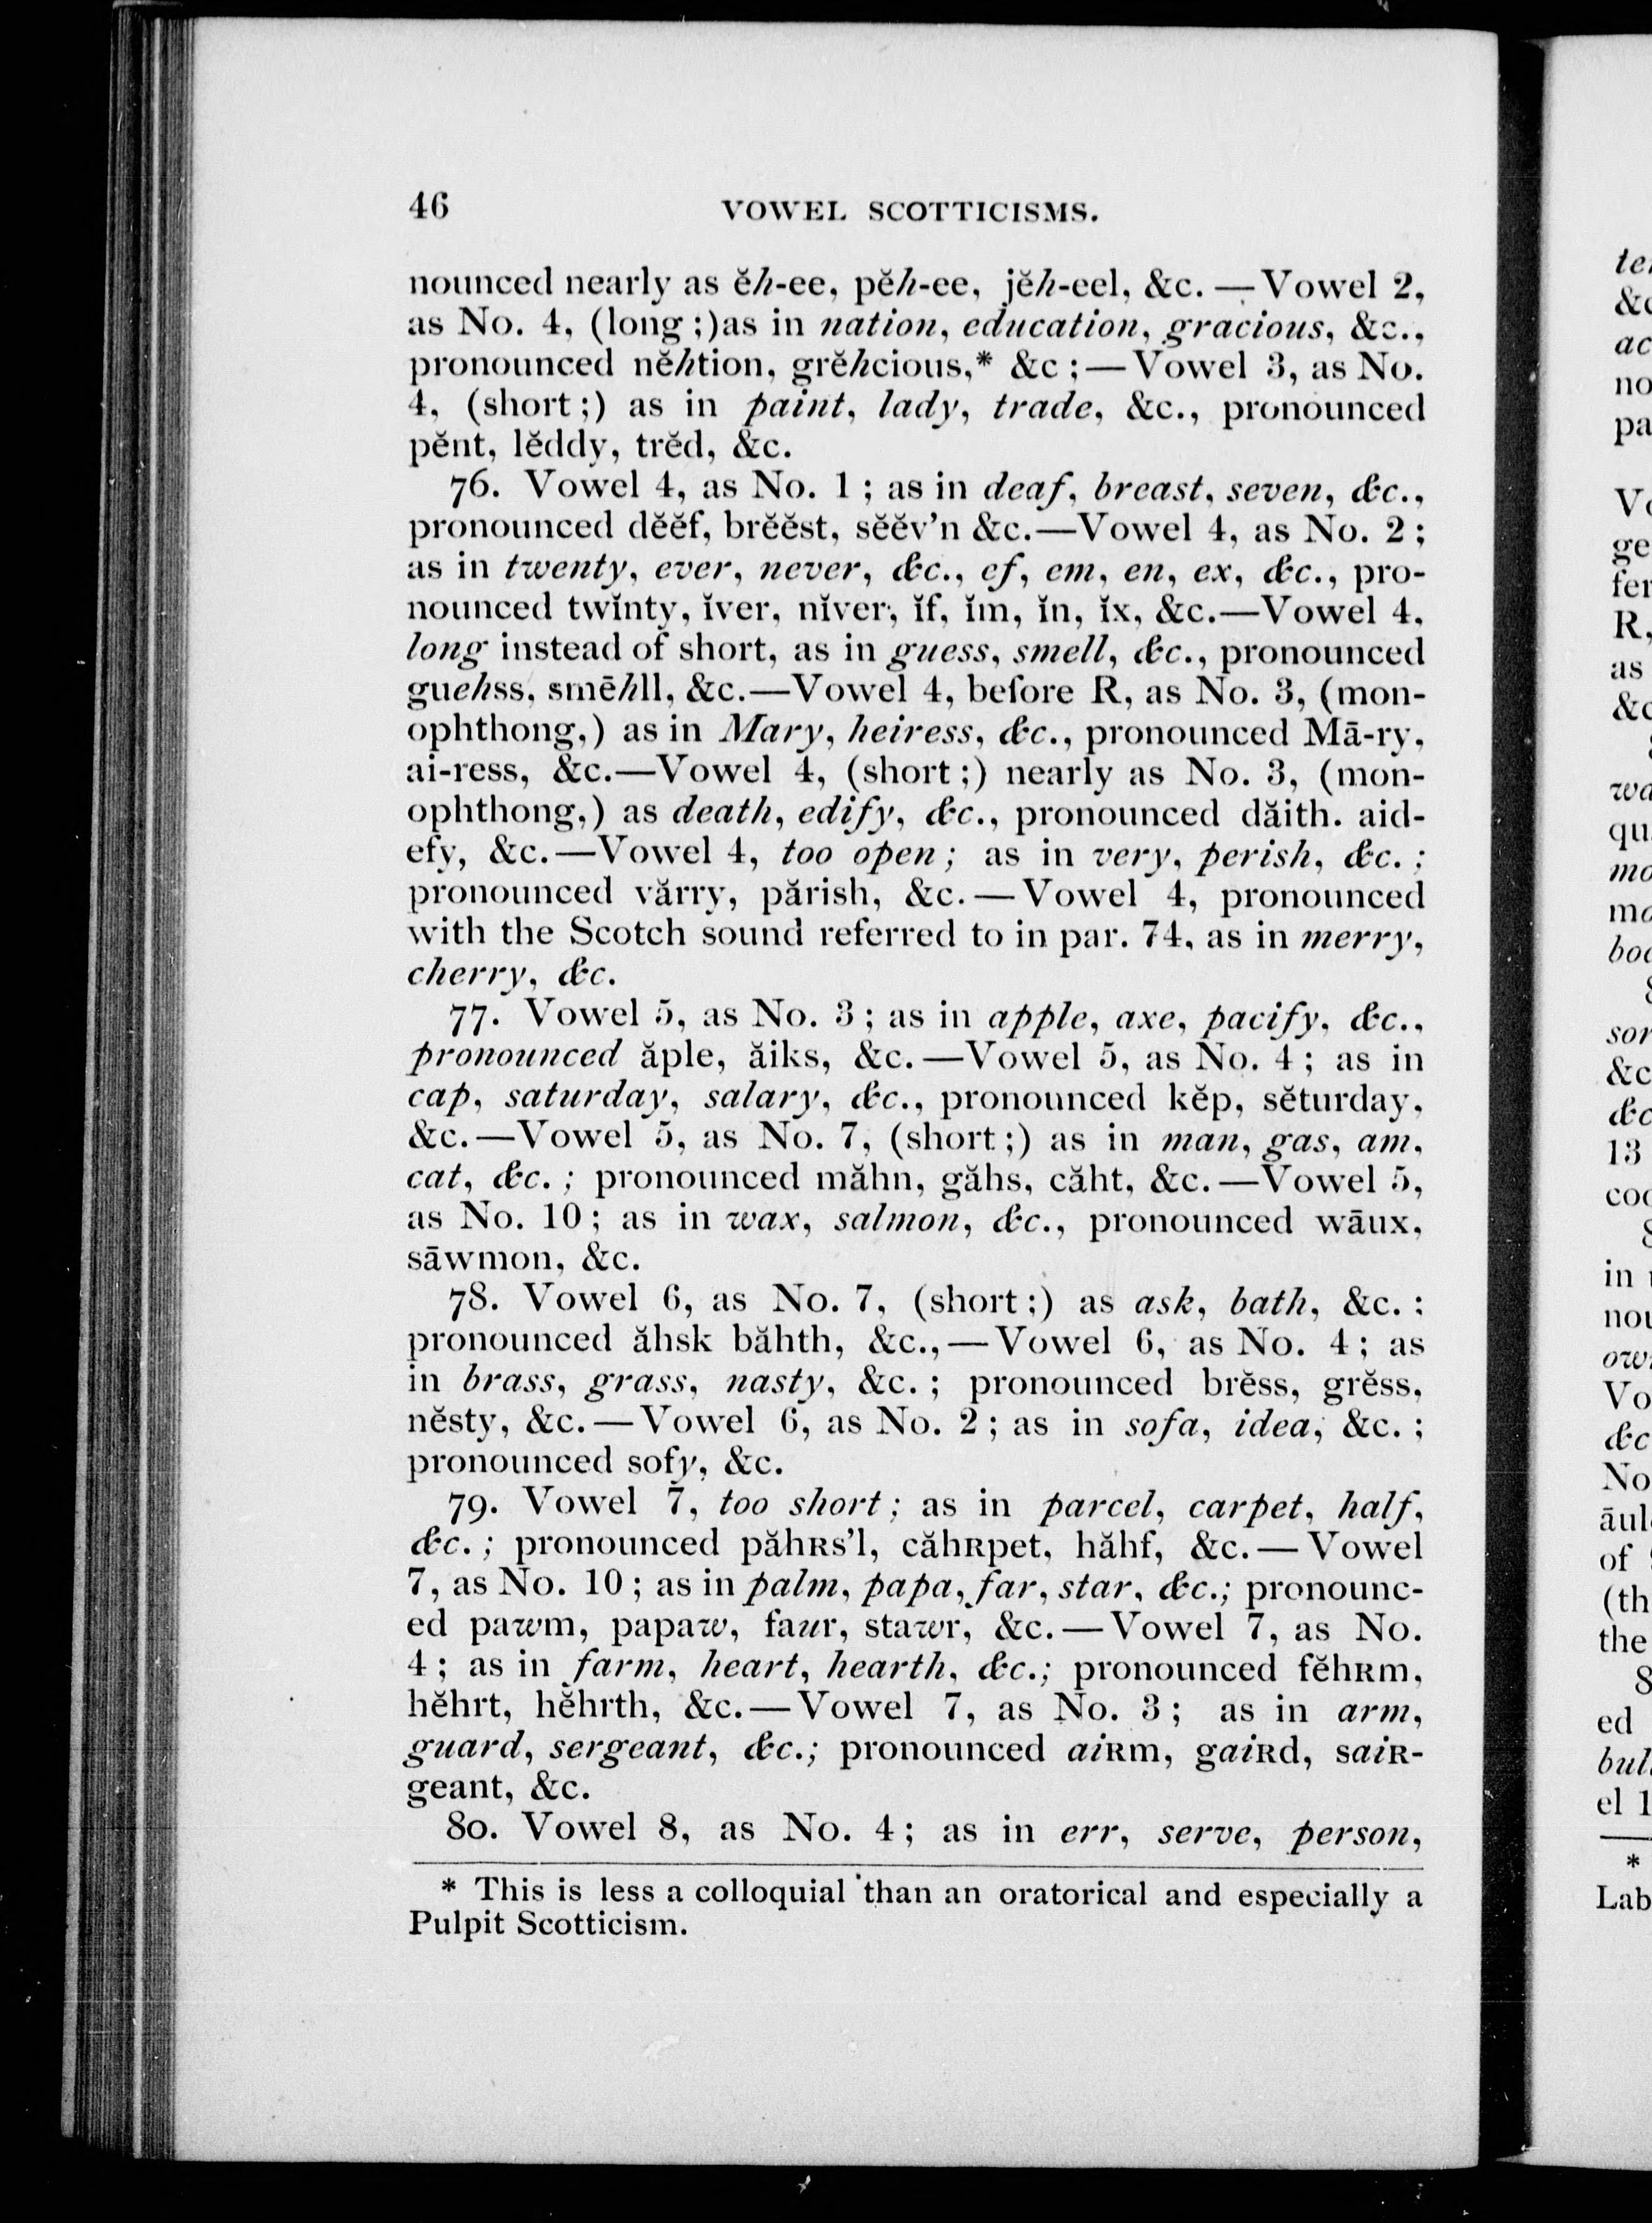 46 VOWEL SCOTTICISMS.
nounced nearly as ĕh-ee, pĕh-ee, jĕh-eel, &c. — Vowel 2,
as No. 4, (long ;)as in nation, education, gracious, &c.,
pronounced nĕhtion, grĕhcious,* &c ;— Vowel 3, as No.
4, (short ;) as in paint, lady, trade, &c., pronounced
pĕnt, lĕddy, trĕd, &c.
76. Vowel 4, as No. 1 ; as in deaf, breast, seven, &c.,
pronounced dĕĕf, brĕĕst, sĕĕv'n &c.—Vowel 4, as No. 2 ;
as in twenty, ever, never, &c., ef, em, en, ex, &c., pro-
nounced twĭnty, ĭver, nĭver, ĭf, ĭm, ĭn, ĭx, &c.—Vowel 4,
long instead of short, as in guess, smell, &c., pronounced
guehss, smēhll, &c.—Vowel 4, before R, as No. 3, (mon-
ophthong,) as in Mary, heiress, &c., pronounced Mā-ry,
ai-ress, &c.—Vowel 4, (short ;) nearly as No. 3, (mon-
ophthong,) as death, edify, &c., pronounced dăith. aid-
efy, &c.—Vowel 4, too open ; as in very, perish, &c. ;
pronounced vărry, părish, &c. — Vowel 4, pronounced
with the Scotch sound referred to in par. 74, as in merry,
cherry, &c.
77. Vowel 5, as No. 3 ; as in apple, axe, pacify, &c.,
pronounced ăple, ăiks, &c. —Vowel 5, as No. 4 ; as in
cap, saturday, salary, &c., pronounced kĕp, sĕturday,
&c. —Vowel 5, as No. 7, (short ;) as in man, gas, am,
cat, &c. ; pronounced măhn, găhs, căht, &c. —Vowel 5,
as No. 10 ; as in wax, salmon, &c., pronounced wāux,
sāwmon, &c.
78. Vowel 6, as No. 7, (short ;) as ask, bath, &c. :
pronounced ăhsk băhth, &c., — Vowel 6, as No. 4 ; as
in brass, grass, nasty, &c. ; pronounced brĕss, grĕss,
nĕsty, &c. — Vowel 6, as No. 2 ; as in sofa, idea, &c. ;
pronounced sofy, &c.
79. Vowel 7, too short ; as in parcel, carpet, half,
&c. ; pronounced păhRs'l, căhRpet, hăhf, &c. — Vowel
7, as No. 10 ; as in palm, papa, far, star, &c.; pronounc-
ed pawm, papaw, faur, stawr, &c. — Vowel 7, as No.
4 ; as in farm, heart, hearth, &c.; pronounced fĕhRm,
hĕhrt, hĕhrth, &c. — Vowel 7, as No. 3 ; as in arm,
guard, sergeant, &c.; pronounced aiRm, gaiRd, saiR-
geant, &c.
80. Vowel 8, as No. 4 ; as in err, serve, person,
* This is less a colloquial than an oratorical and especially a
Pulpit Scotticism.